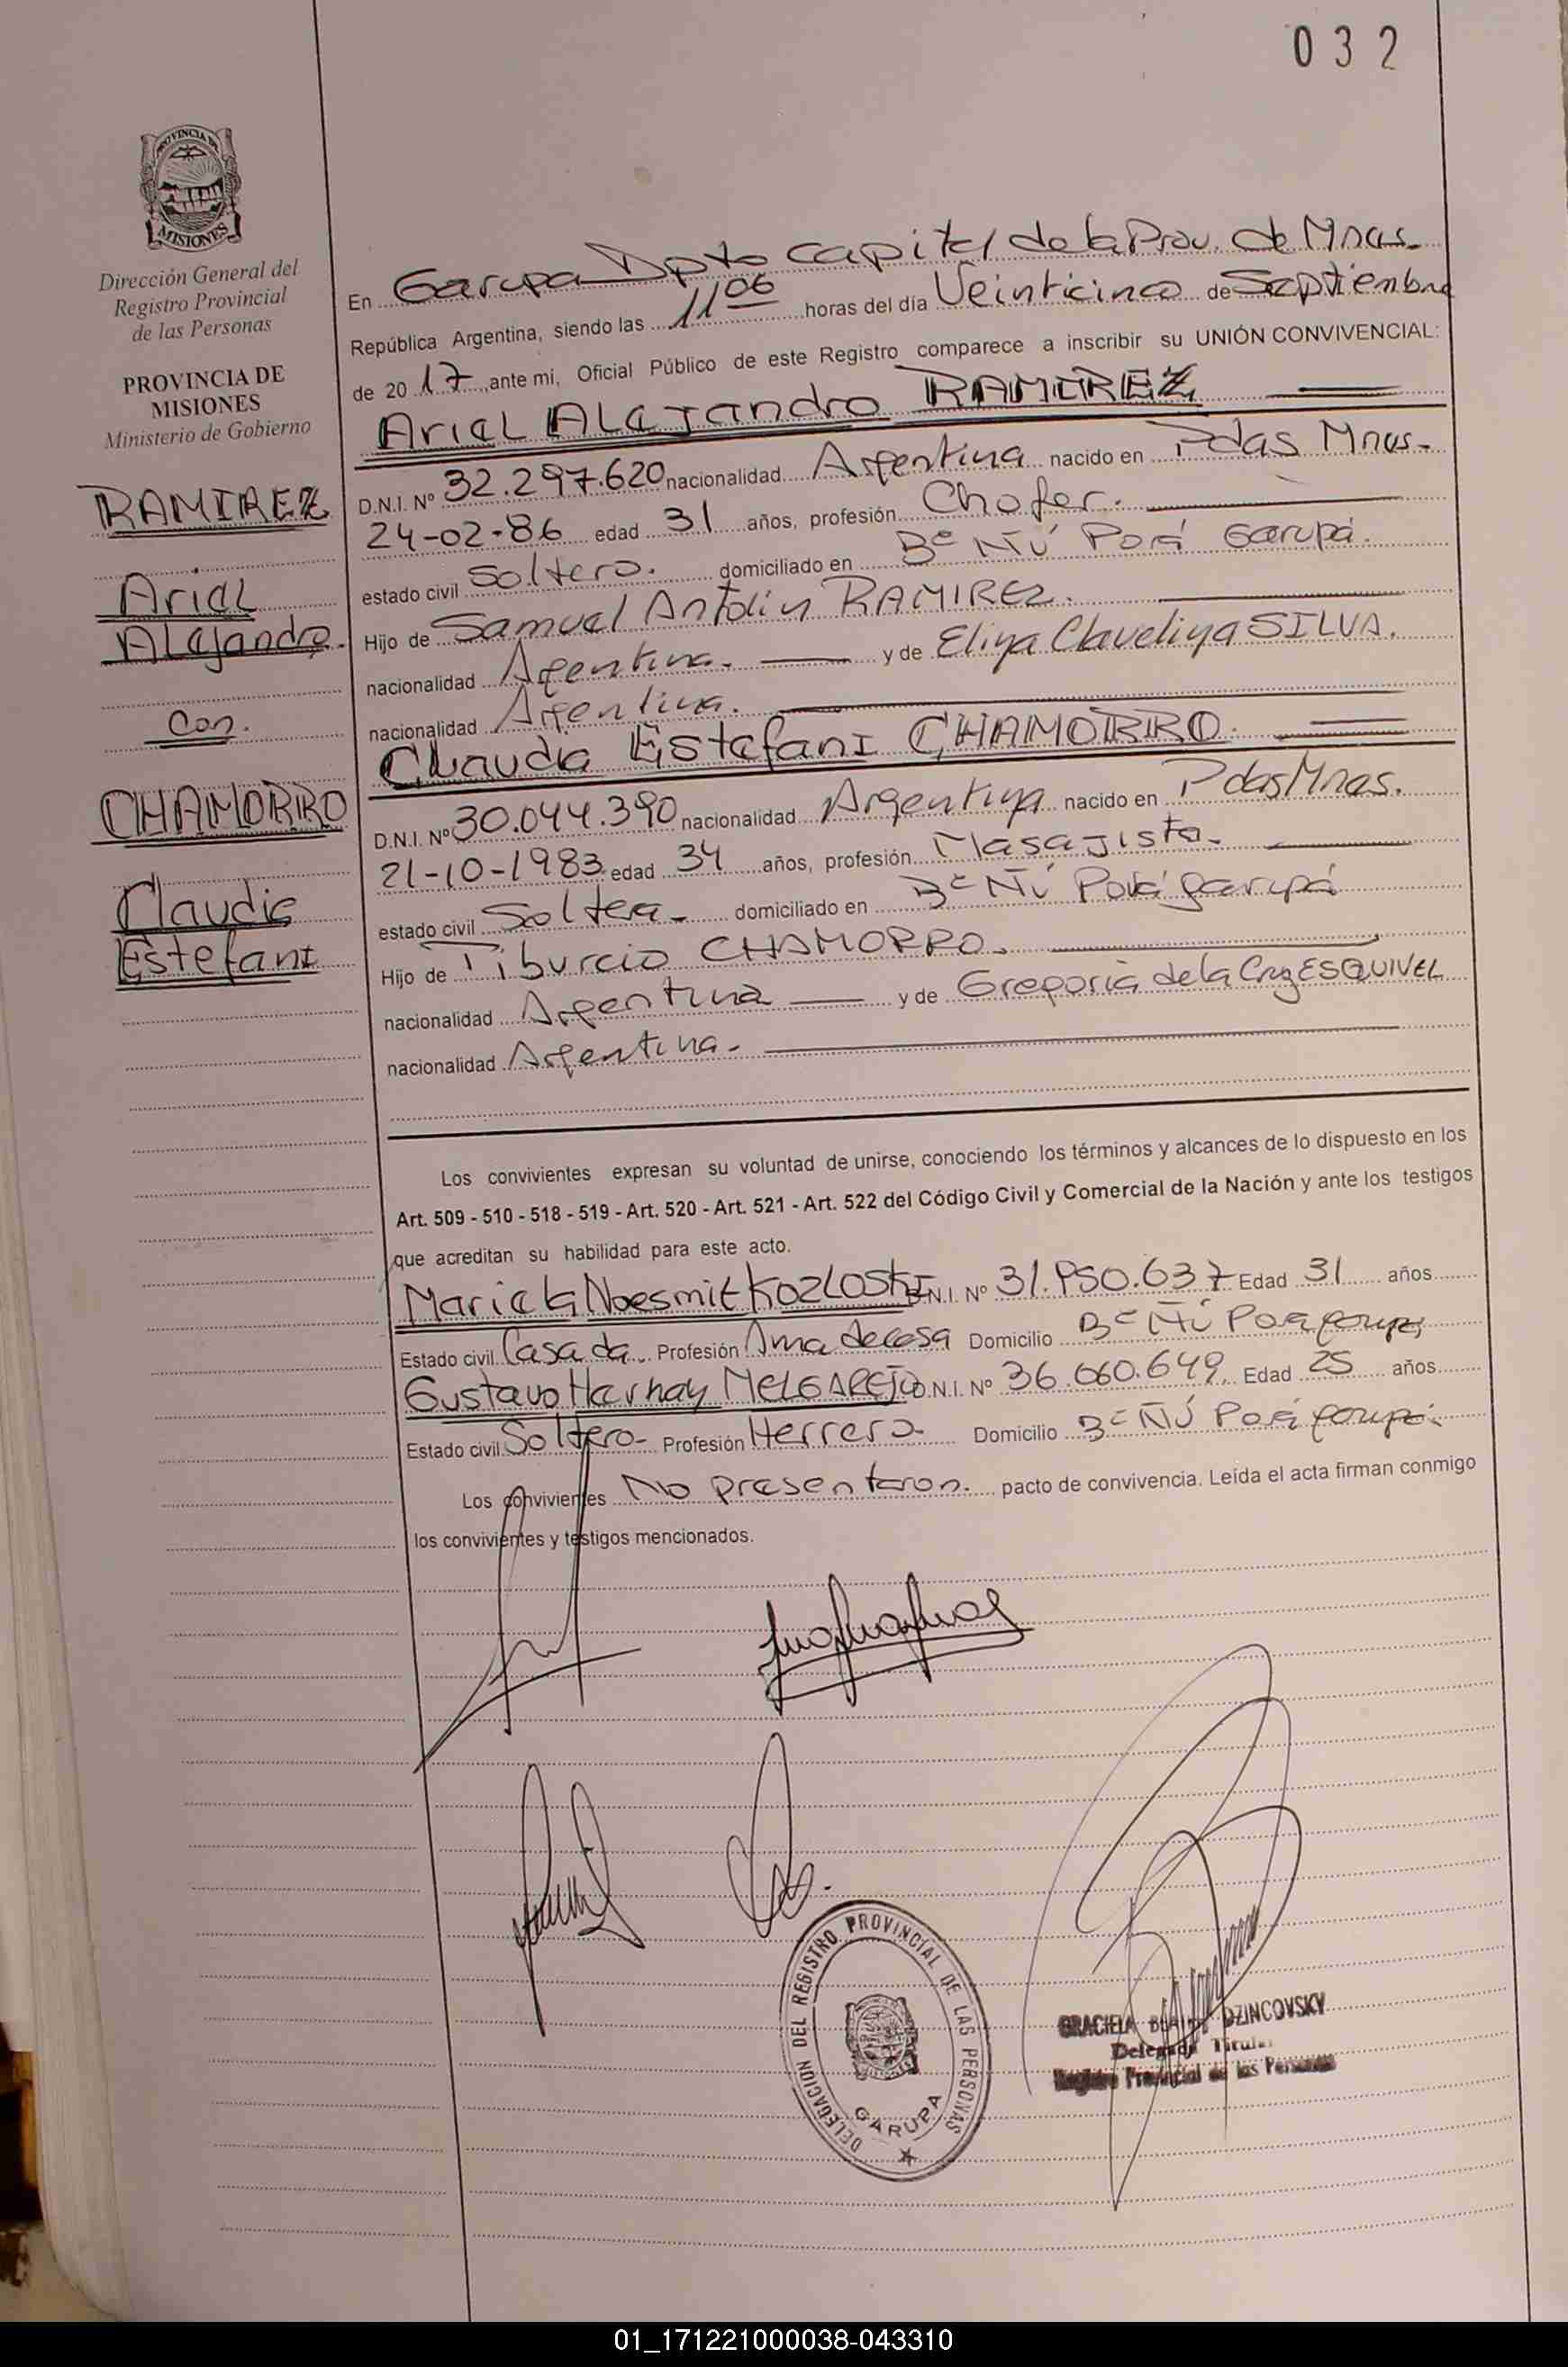 032
PROVINCIA DE
MISIONES
Dirección General del
Registro Provincial
de las Personas
PROVINCIA DE
MISIONES
Ministerio de Gobierno
RAMIREZ
Ariel
Alejandro.
Con.
CHAMORRO
Claudia
Estefani
En Garupa Dpto Capital de la Prov. de Mnes.
República Argentina, siendo las 11 06 horas del día Veinticinco de Septiembre
de 2017, ante mi, Oficial Público de este Registro comparece a inscribir su UNIÓN CONVIVENCIAL:
Ariel Alejandro RAMIREZ
D.N.I. Nº 32.297.620 nacionalidad Argentina nacido en Pdas Mnes.
24-02-86 edad 31 años, profesión Chofer.
estado civil Soltero. domiciliado en Bº Ñú Porá Garupá.
Hijo de Samuel Antolin RAMIREZ.
nacionalidad Argentina. y de Elina Clavelina SILVA.
nacionalidad Argentina.
Claudia Estefani CHAMORRO.
D.N.I. Nº 30.044.390 nacionalidad Argentina nacido en Pdas Mnes.
21-10-1983. edad 34 años, profesión Masajista.
estado civil Soltera. domiciliado en Bº Ñú Porá Garupá
Hijo de Tiburcio CHAMORRO.
nacionalidad Argentina y de Gregoria de la Cruz ESQUIVEL
nacionalidad Argentina.
Los convivientes expresan su voluntad de unirse, conociendo los términos y alcances de lo dispuesto en los
Art. 509 - 510 - 518 - 519 - Art. 520 - Art. 521 - Art. 522 del Código Civil y Comercial de la Nación y ante los testigos
que acreditan su habilidad para este acto.
Mariela Noesmit KOZLOSKI D.N.I. Nº 31.950.637 Edad 31 años
Estado civil Casada. Profesión Ama de casa Domicilio Bº Ñú Porá Garupá
Gustavo Harnay MELGAREJO D.N.I. Nº 36.060.649. Edad 25 años
Estado civil Soltero- Profesión Herrero- Domicilio Bº Ñú Porá Garupá.
Los convivientes No presentaron. pacto de convivencia. Leída el acta firman conmigo
los convivientes y testigos mencionados.
DELEGACION DEL REGISTRO PROVINCIAL DE LAS PERSONAS
GARUPA
GRACIELA DZINCOVSKY
Delegada Titular
Registro Provincial de las Personas
01_171221000038-043310